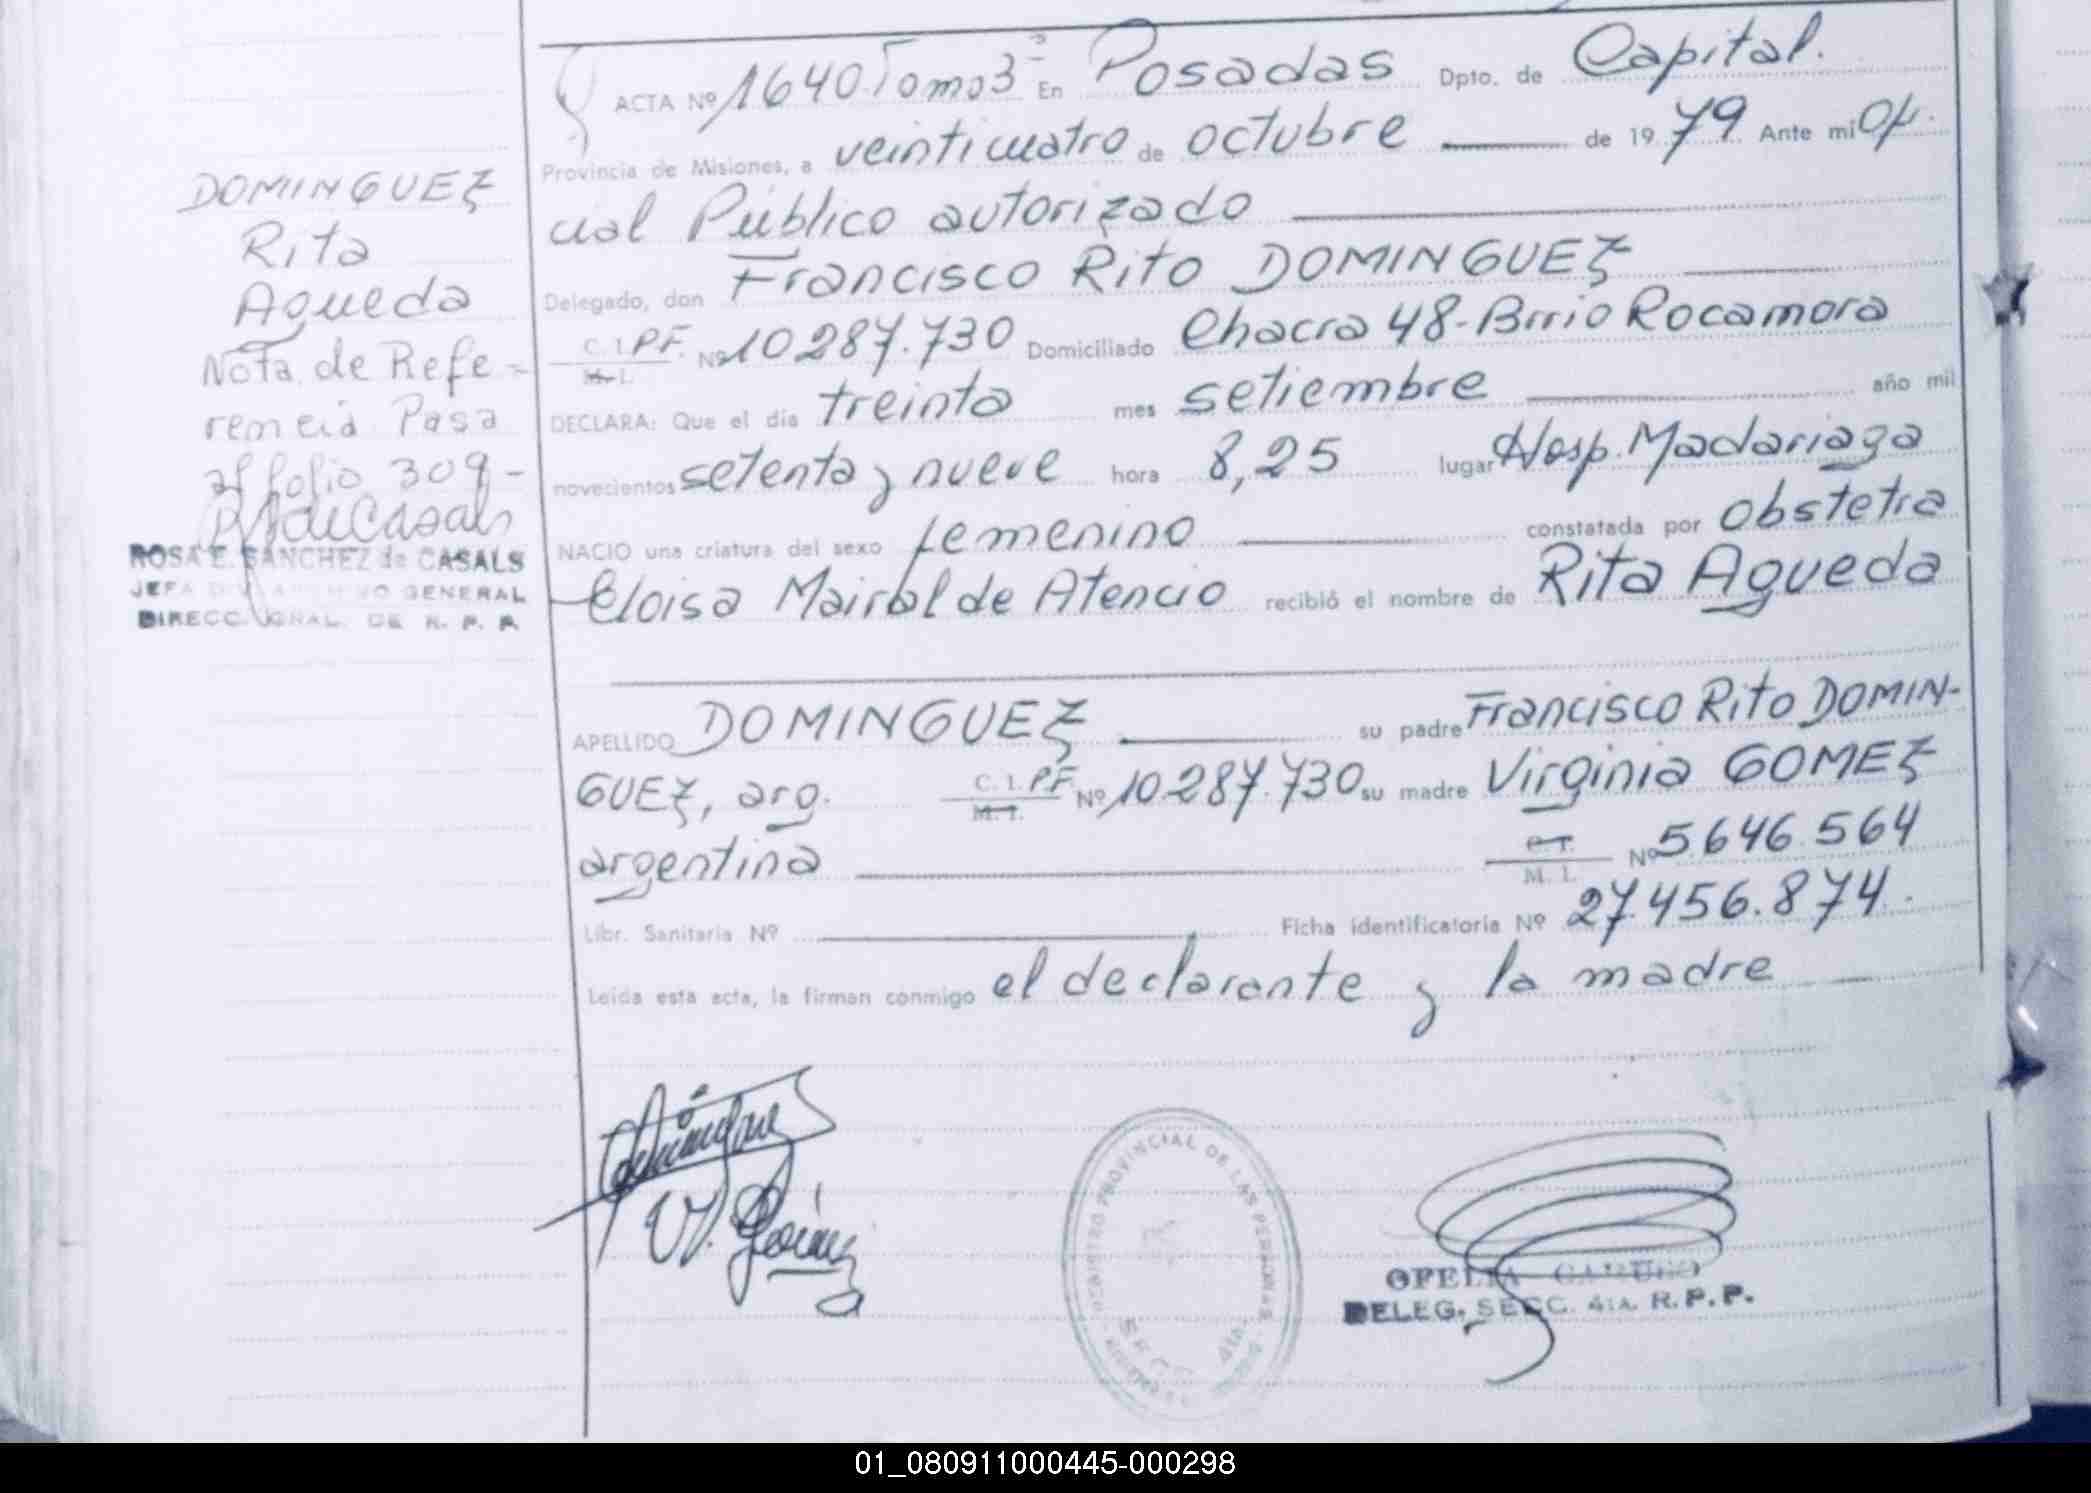 ACTA Nº 1640 Tomo 3º En Posadas Dpto. de Capital.
Provincia de Misiones, a veinticuatro de octubre de 1979 Ante mi Ofi
cial Público autorizado
Delegado, don Francisco Rito DOMINGUEZ
C. I. PF. M. I. Nº 10287.730 Domiciliado Chacra 48-Brrio Rocamora
DECLARA: Que el día treinta mes setiembre año mil
novecientos setenta y nueve hora 8,25 lugar Hosp. Madariaga
NACIO una criatura del sexo femenino constatada por obstetra
Eloisa Mairal de Atencio recibió el nombre de Rita Agueda
APELLIDO DOMINGUEZ su padre Francisco Rito DOMIN-
GUEZ, arg. C. I. PF M. I. Nº 10.287.730 su madre Virginia GOMEZ
argentina C. I. M. I. Nº 5.646.564
Libr. Sanitaria Nº Ficha identificatoria Nº 27.456.874.
Leída esta acta, la firman conmigo el declarante y la madre
DOMINGUEZ
Rita
Agueda
Nota de Refe-
rencia Pasa
al folio 309-
ROSA E. SANCHEZ de CASALS
JEFA GENERAL
DIRECC. GRAL. DE R. P. P.
REGISTRO PROVINCIAL DE LAS PERSONAS
SECC. 4ta.
OFELIA CARUSO
DELEG. SECC. 4ta. R.P.P.
01_080911000445-000298